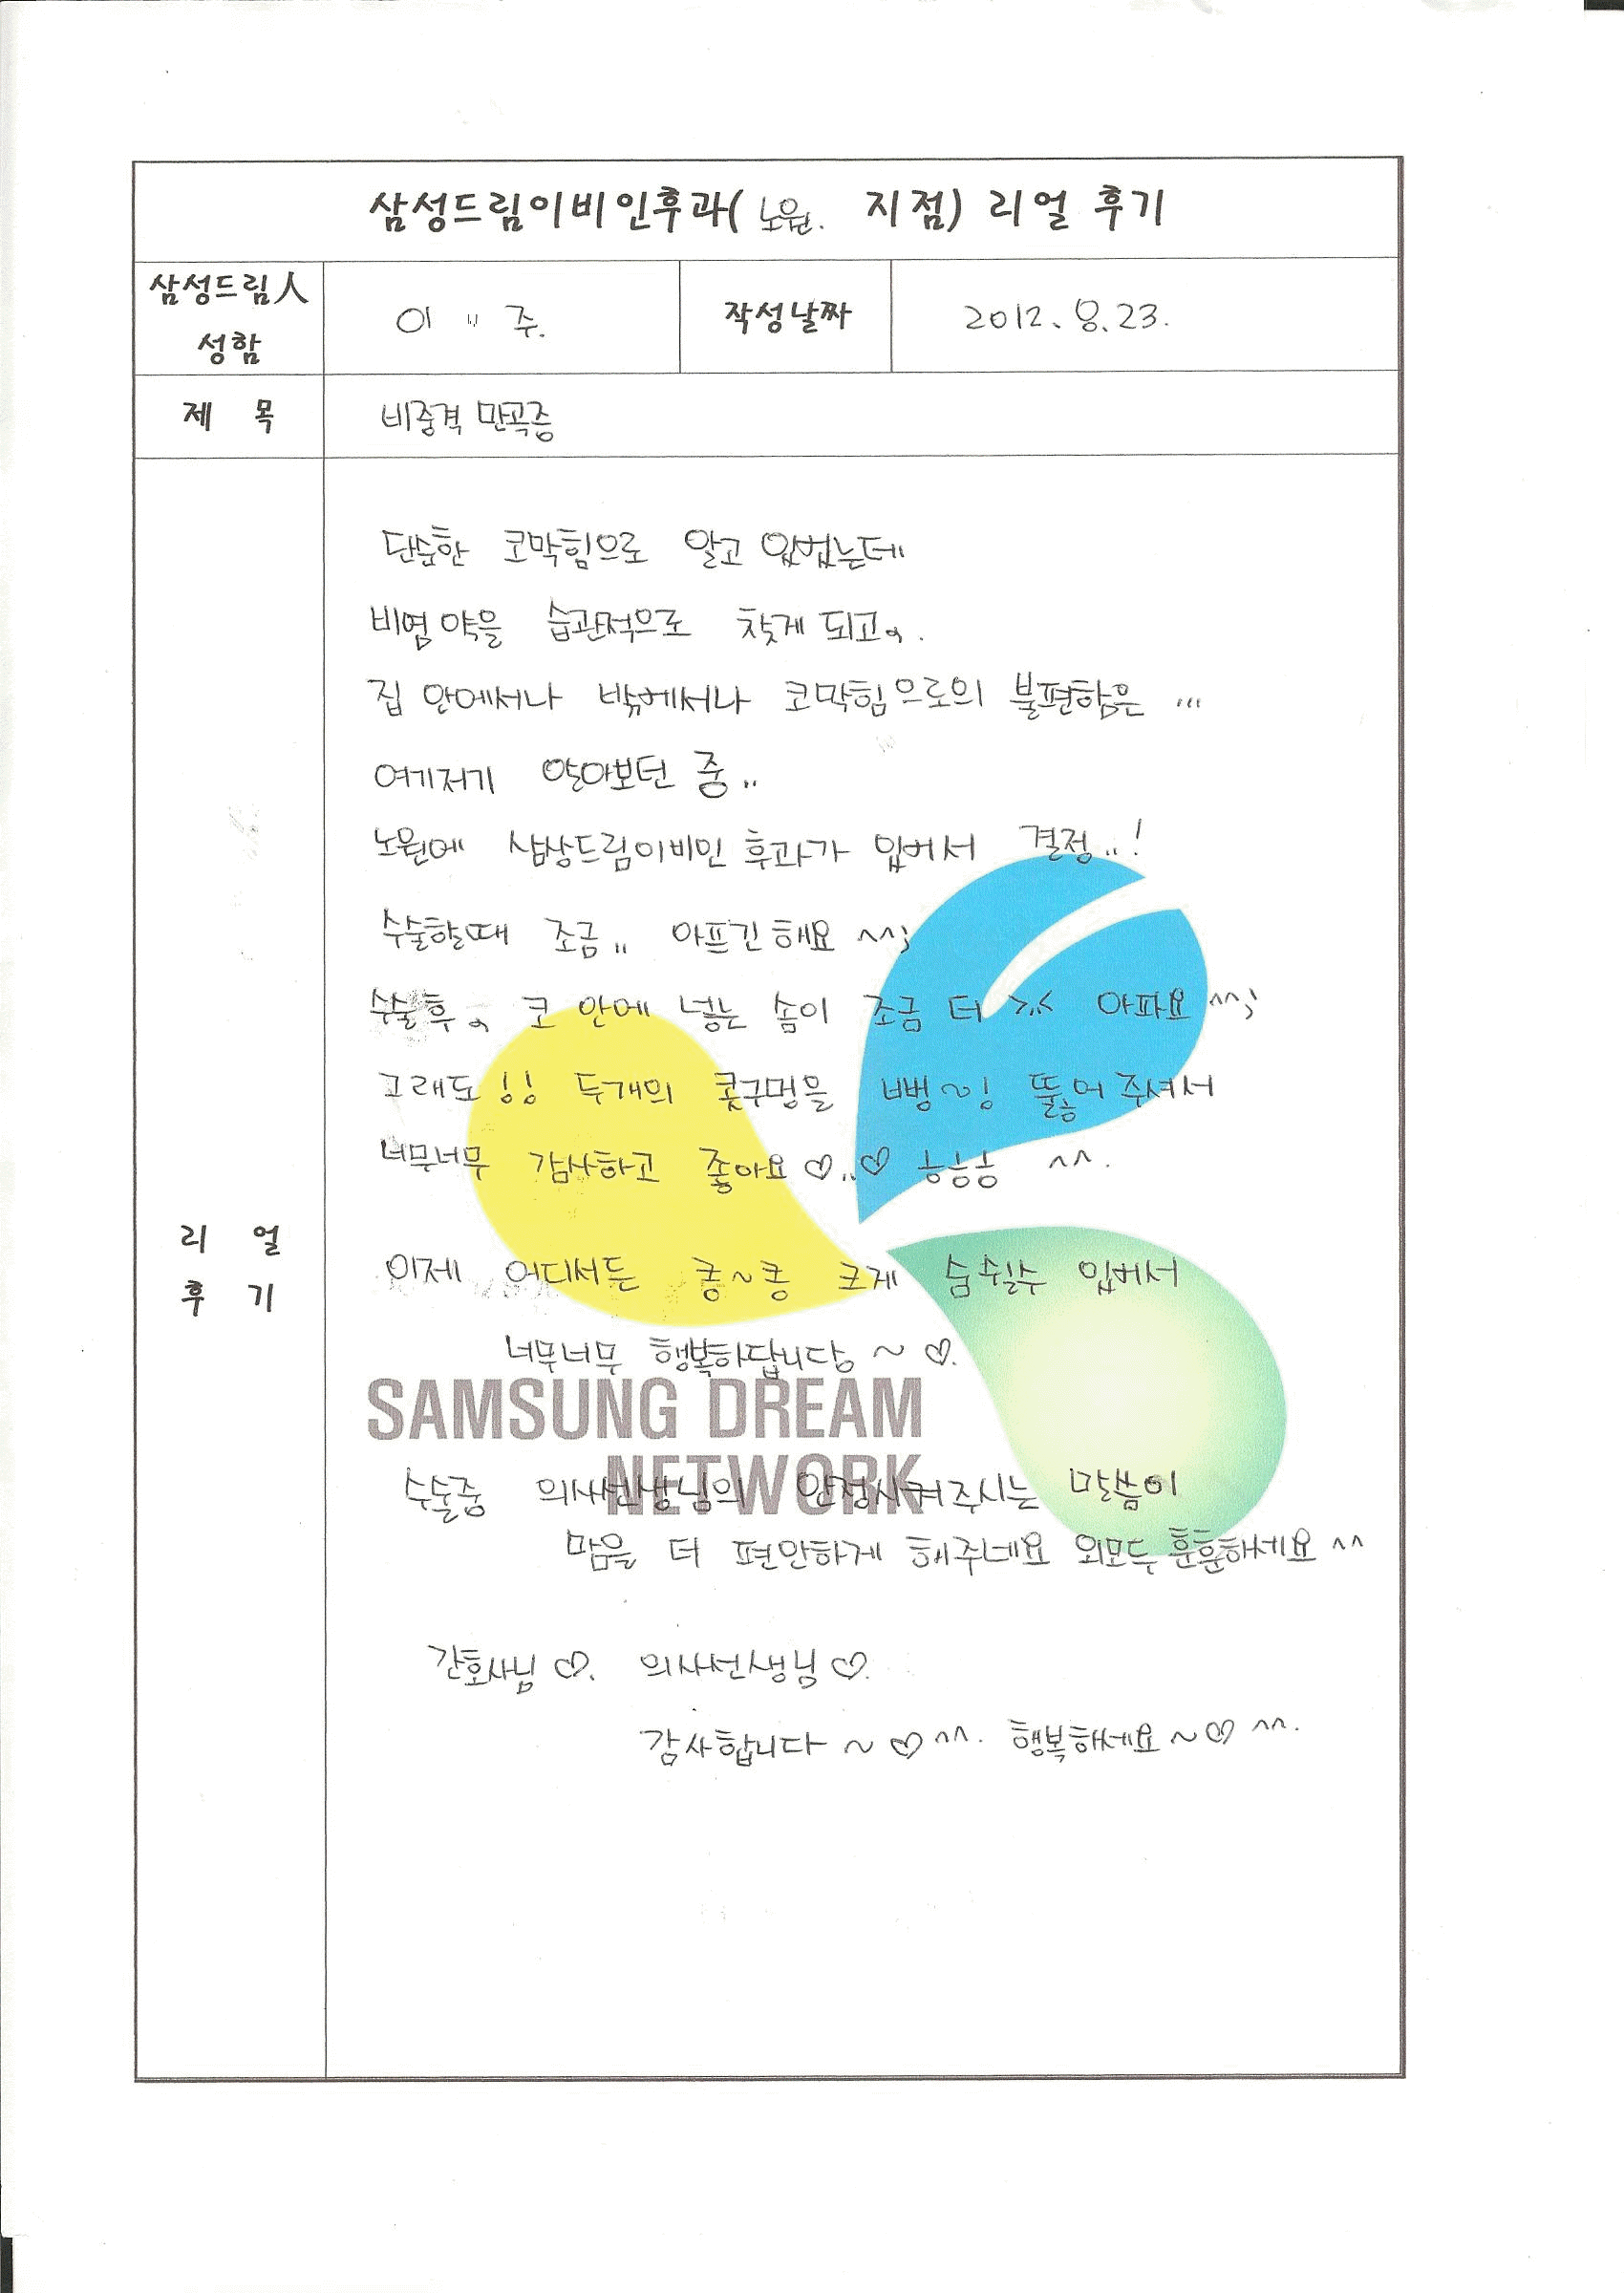 삼성드림이비인후과( 노원. 지점) 리얼 후기
삼성드림人 성함
이 " 주.
작성날짜
2012. 8. 23.
제 목
비중격 만곡증
리 얼 후 기
단순한 코막힘으로 알고 있었는데
비염 약을 습관적으로 찾게 되고,.
집 안에서나 밖에서나 코막힘으로의 불편함은 ...
여기저기 알아보던 중..
노원에 삼성드림이비인 후과가 있어서 결정..!
수술할때 조금.. 아프긴 해요 ^^;
수술후, 코 안에 넣는 솜이 조금 더 >,< 아파요 ^^;
그래도!! 두개의 콧구멍을 뻥~! 뚫어 주셔서
너무너무 감사하고 좋아요♡..♡ ㅎㅎㅎ ^^.
이제 어디서든 킁~킁 크게 숨쉴수 있어서
너무너무 행복하답니당 ~ ♡.
SAMSUNG DREAM
NETWORK
수술중 의사선생님의 안정시켜주시는 말씀이
맘을 더 편안하게 해주네요 외모두 훈훈하세요 ^^
간호사님 ♡. 의사선생님 ♡.
감사합니다 ~ ♡ ^^. 행복하세요 ~ ♡ ^^.